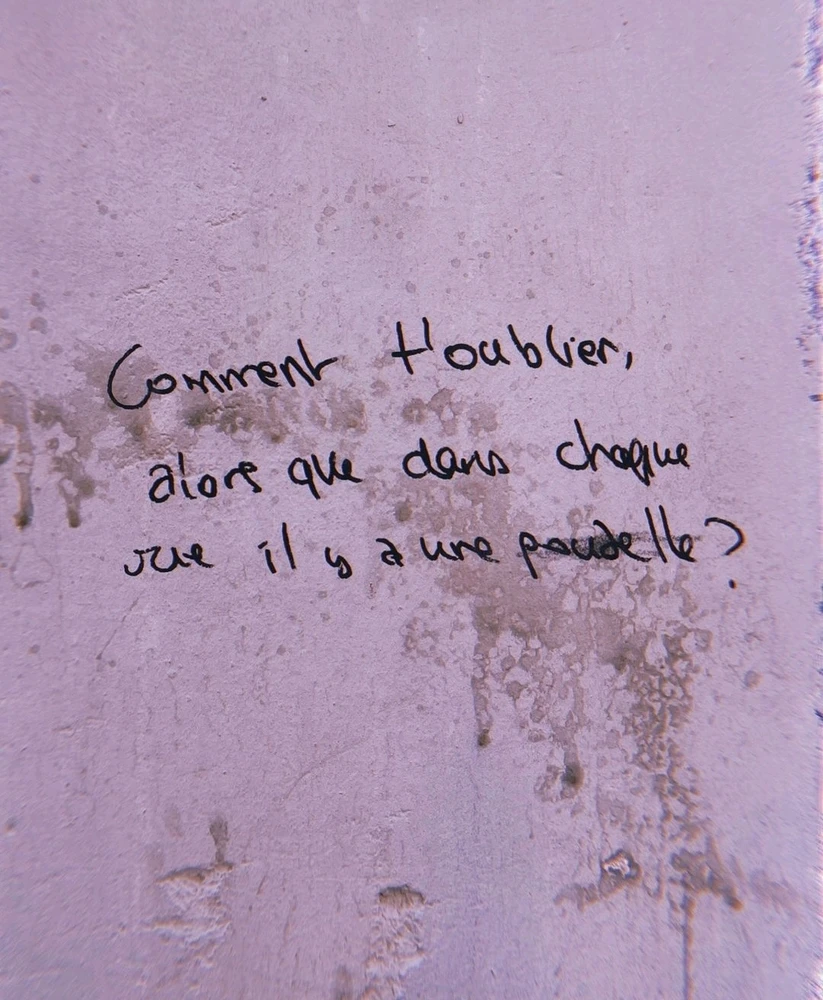 Comment t'oublier,
alors que dans chaque
rue il y a une poubelle?